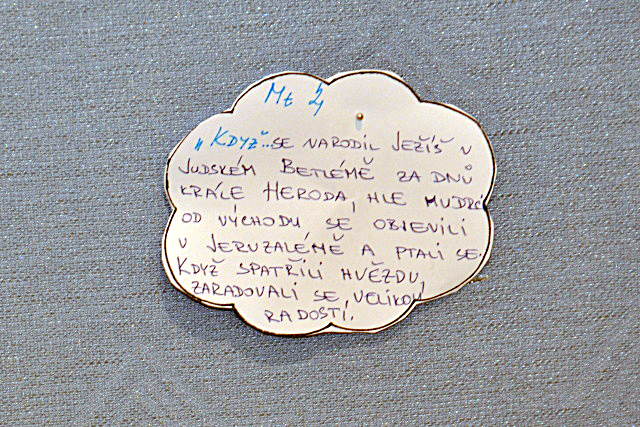 Mt 2
"Když"..se narodil Ježíš v
judském Betlémě za dnů
krále Heroda, hle mudrci
od východu se objevili
v Jeruzalémě a ptali se.
Když spatřili hvězdu,
zaradovali se velikou
radostí.